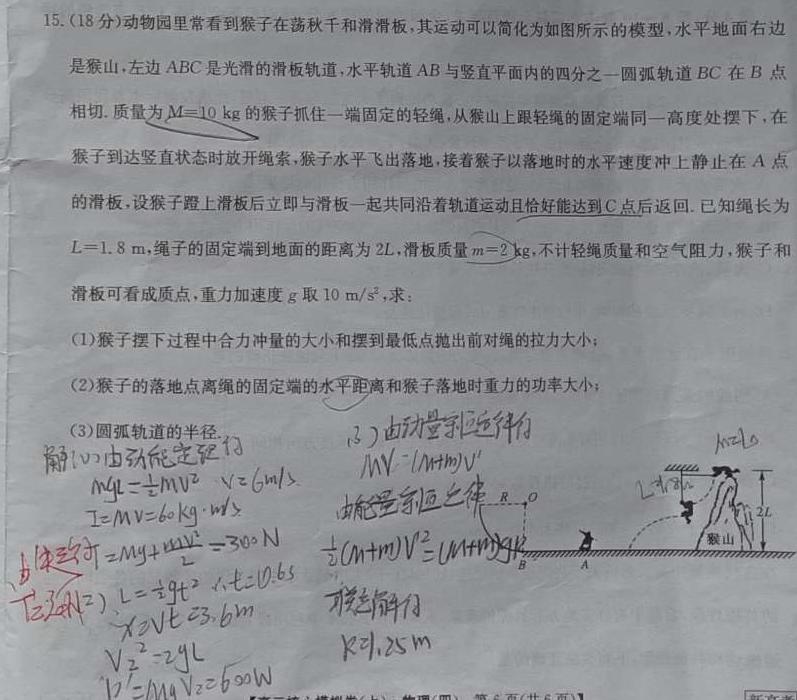 15.(18分)动物园里常看到猴子在荡秋千和滑滑板,其运动可以简化为如图所示的模型,水平地面右边
是猴山,左边ABC是光滑的滑板轨道,水平轨道AB与竖直平面内的四分之一圆弧轨道BC在B点
相切.质量为M=10 kg的猴子抓住一端固定的轻绳,从猴山上跟轻绳的固定端同一高度处摆下,在
猴子到达竖直状态时放开绳索,猴子水平飞出落地,接着猴子以落地时的水平速度冲上静止在A点
的滑板,设猴子蹬上滑板后立即与滑板一起共同沿着轨道运动且恰好能达到C点后返回.已知绳长为
L=1.8 m,绳子的固定端到地面的距离为2L,滑板质量m=2 kg,不计轻绳质量和空气阻力,猴子和
滑板可看成质点,重力加速度g取10 m/s²,求:
(1)猴子摆下过程中合力冲量的大小和摆到最低点抛出前对绳的拉力大小;
(2)猴子的落地点离绳的固定端的水平距离和猴子落地时重力的功率大小;
(3)圆弧轨道的半径.
解(1)由动能定理得
MgL=½MV² V=6m/s
I=MV=60kg·m/s
T=Mg+MV²/L=300N
(2) L=½gt² ∴t=0.6s
x=Vt=3.6m
V₂²=2gL
P=MgV₂=600W
(3)由动量守恒定律得
MV=(M+m)V'
由能量守恒定律
½(M+m)V²=(M+m)gR
联立解得
R=1.25m
R
O
B
A
猴山
2L